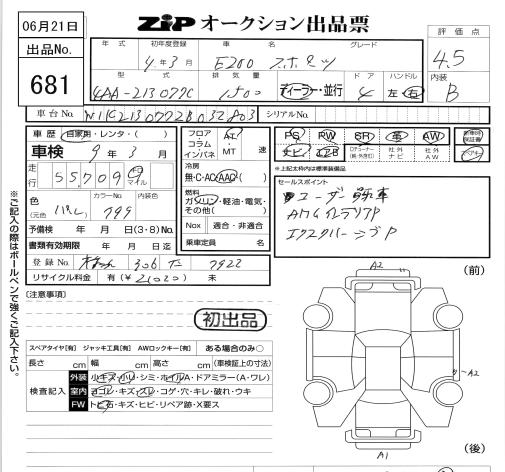 06月21日
ZIP オークション出品票
出品No.
681
年式 初年度登録 車名 グレード
4年3月 E200 スポーツ
評価点
4.5
型式 排気量 ドア ハンドル
4AA-213077C 1500 ディーラー・並行 4 左・右
内装
B
車台No. シリアルNo.
車歴 自家用・レンタ・( )
車検 9年3月
走行 55,709 キロ マイル
色 (元色 ) カラーNo. 内装色
799
予備検 年 月 日(3・8)No.
書類有効期限 年 月 日迄
登録No. 306 7922
リサイクル料金 有(¥ ) 未
フロア・コラム インパネ AT・MT 速
冷房 無・C・AC・AAC( )
燃料 ガソリン・軽油・電気・その他( )
Nox 適合・非適合
乗車定員 名
PS PW SR 革 AW
ナビ エアB TVチューナー(純・外含む) 社外ナビ 社外AW
新車時保証書
※上記太枠内は標準装備品
セールスポイント
ユーザー
AMG
※ご記入の際はボールペンで強くご記入下さい。
(注意事項)
初出品
スペアタイヤ【有】 ジャッキ工具【有】 AWロックキー【有】 ある場合のみ〇
長さ cm 幅 cm 高さ cm (車検証上の寸法)
検査記入
外装 小キズ・小ヘ・シミ・ホイルA・ドアミラー(A・ワレ)
室内 ヨゴレ・キズ・スレ・コゲ・穴・キレ・破れ・ウキ
FW トビ石・キズ・ヒビ・リペア跡・X要ス
(前)
A2
A2
A1
(後)